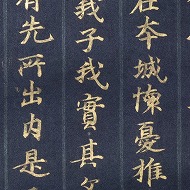 在夲城懷憂推
我子我實其
有先所出内是